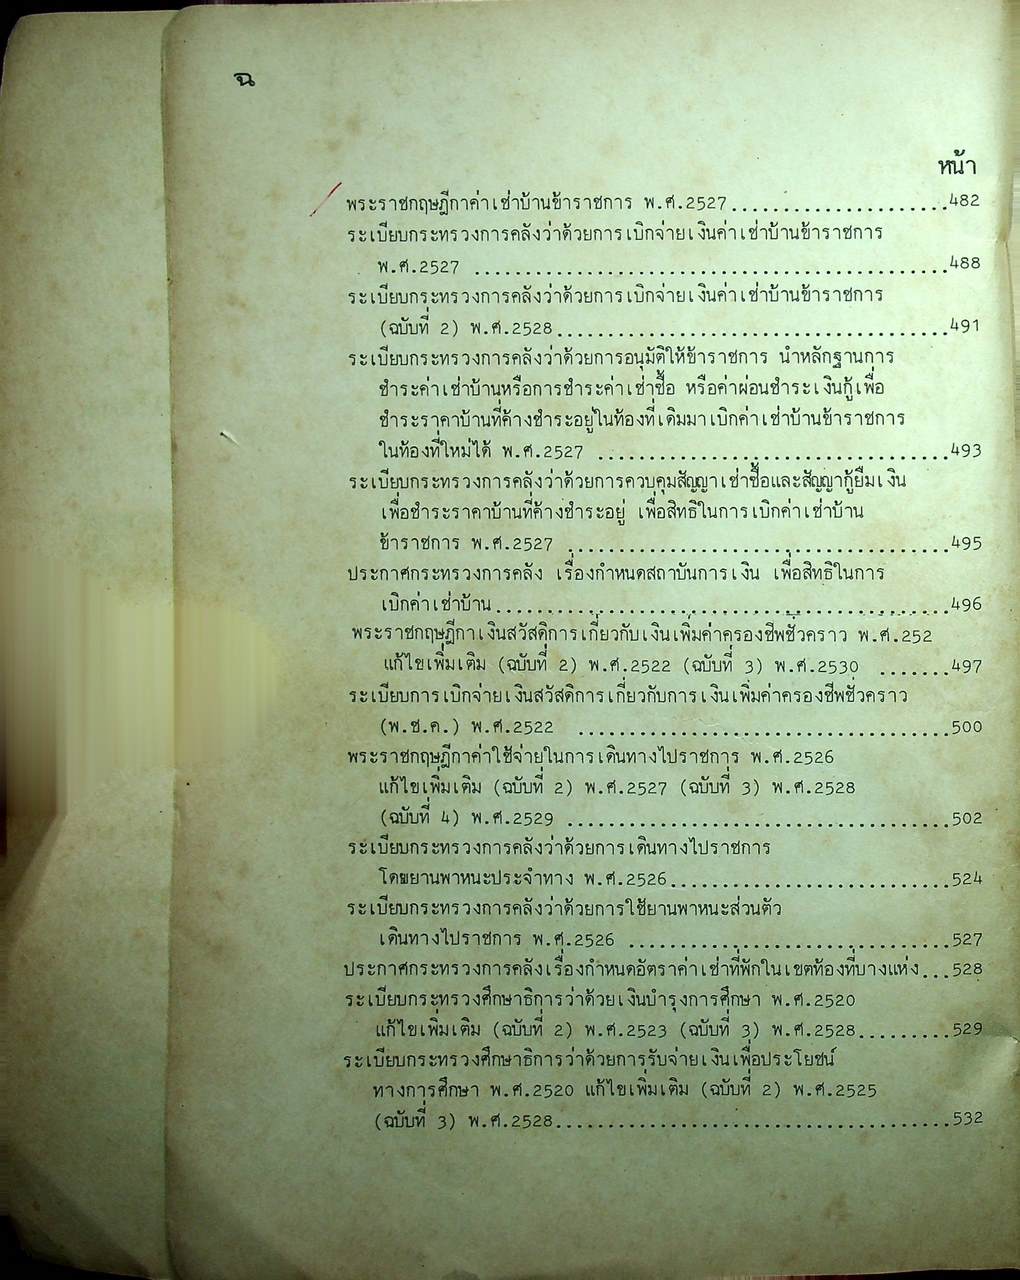 ฉ
หน้า
พระราชกฤษฎีกาค่าเช่าบ้านข้าราชการ พ.ศ.2527.....................482
ระเบียบกระทรวงการคลังว่าด้วยการเบิกจ่ายเงินค่าเช่าบ้านข้าราชการ
พ.ศ.2527 ..............................................488
ระเบียบกระทรวงการคลังว่าด้วยการเบิกจ่ายเงินค่าเช่าบ้านข้าราชการ
(ฉบับที่ 2) พ.ศ.2528......................................491
ระเบียบกระทรวงการคลังว่าด้วยการอนุมัติให้ข้าราชการ นำหลักฐานการ
ชำระค่าเช่าบ้านหรือการชำระค่าเช่าซื้อ หรือค่าผ่อนชำระเงินกู้เพื่อ
ชำระราคาบ้านที่ค้างชำระอยู่ในท้องที่เดิมมาเบิกค่าเช่าบ้านข้าราชการ
ในท้องที่ใหม่ได้ พ.ศ.2527 ..................................493
ระเบียบกระทรวงการคลังว่าด้วยการควบคุมสัญญาเช่าซื้อและสัญญากู้ยืมเงิน
เพื่อชำระราคาบ้านที่ค้างชำระอยู่ เพื่อสิทธิในการเบิกค่าเช่าบ้าน
ข้าราชการ พ.ศ.2527 .....................................495
ประกาศกระทรวงการคลัง เรื่องกำหนดสถาบันการเงิน เพื่อสิทธิในการ
เบิกค่าเช่าบ้าน............................................496
พระราชกฤษฎีกาเงินสวัสดิการเกี่ยวกับเงินเพิ่มค่าครองชีพชั่วคราว พ.ศ.252
แก้ไขเพิ่มเติม (ฉบับที่ 2) พ.ศ.2522 (ฉบับที่ 3) พ.ศ.2530 .......497
ระเบียบการเบิกจ่ายเงินสวัสดิการเกี่ยวกับการเงินเพิ่มค่าครองชีพชั่วคราว
(พ.ช.ค.) พ.ศ.2522 ....................................500
พระราชกฤษฎีกาค่าใช้จ่ายในการเดินทางไปราชการ พ.ศ.2526
แก้ไขเพิ่มเติม (ฉบับที่ 2) พ.ศ.2527 (ฉบับที่ 3) พ.ศ.2528
(ฉบับที่ 4) พ.ศ.2529 .....................................502
ระเบียบกระทรวงการคลังว่าด้วยการเดินทางไปราชการ
โดยยานพาหนะประจำทาง พ.ศ.2526...........................524
ระเบียบกระทรวงการคลังว่าด้วยการใช้ยานพาหนะส่วนตัว
เดินทางไปราชการ พ.ศ.2526 ...............................527
ประกาศกระทรวงการคลังเรื่องกำหนดอัตราค่าเช่าที่พักในเขตท้องที่บางแห่ง...528
ระเบียบกระทรวงศึกษาธิการว่าด้วยเงินบำรุงการศึกษา พ.ศ.2520
แก้ไขเพิ่มเติม (ฉบับที่ 2) พ.ศ.2523 (ฉบับที่ 3) พ.ศ.2528.........529
ระเบียบกระทรวงศึกษาธิการว่าด้วยการรับจ่ายเงินเพื่อประโยชน์
ทางการศึกษา พ.ศ.2520 แก้ไขเพิ่มเติม (ฉบับที่ 2) พ.ศ.2525
(ฉบับที่ 3) พ.ศ.2528......................................532